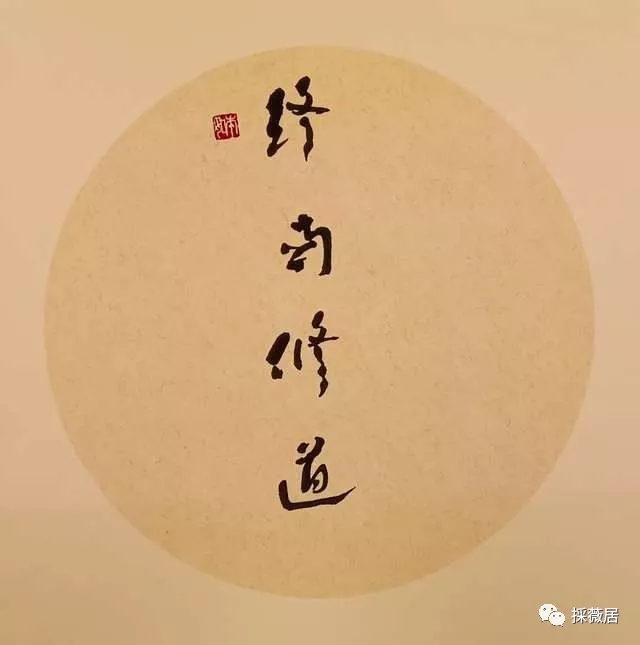 终南修道
採薇居